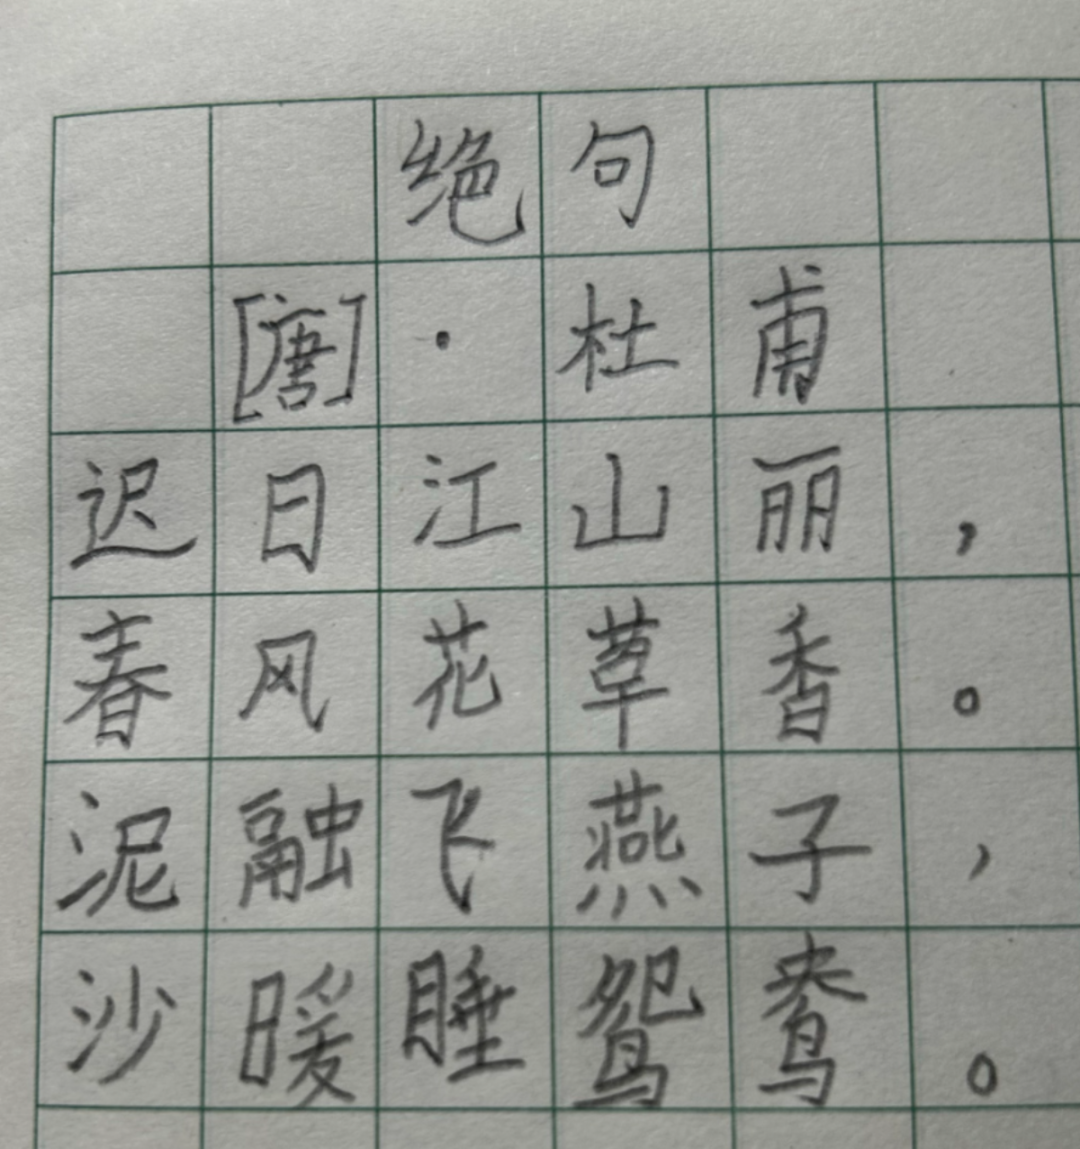 绝句
[唐]·杜甫
迟日江山丽，
春风花草香。
泥融飞燕子，
沙暖睡鸳鸯。